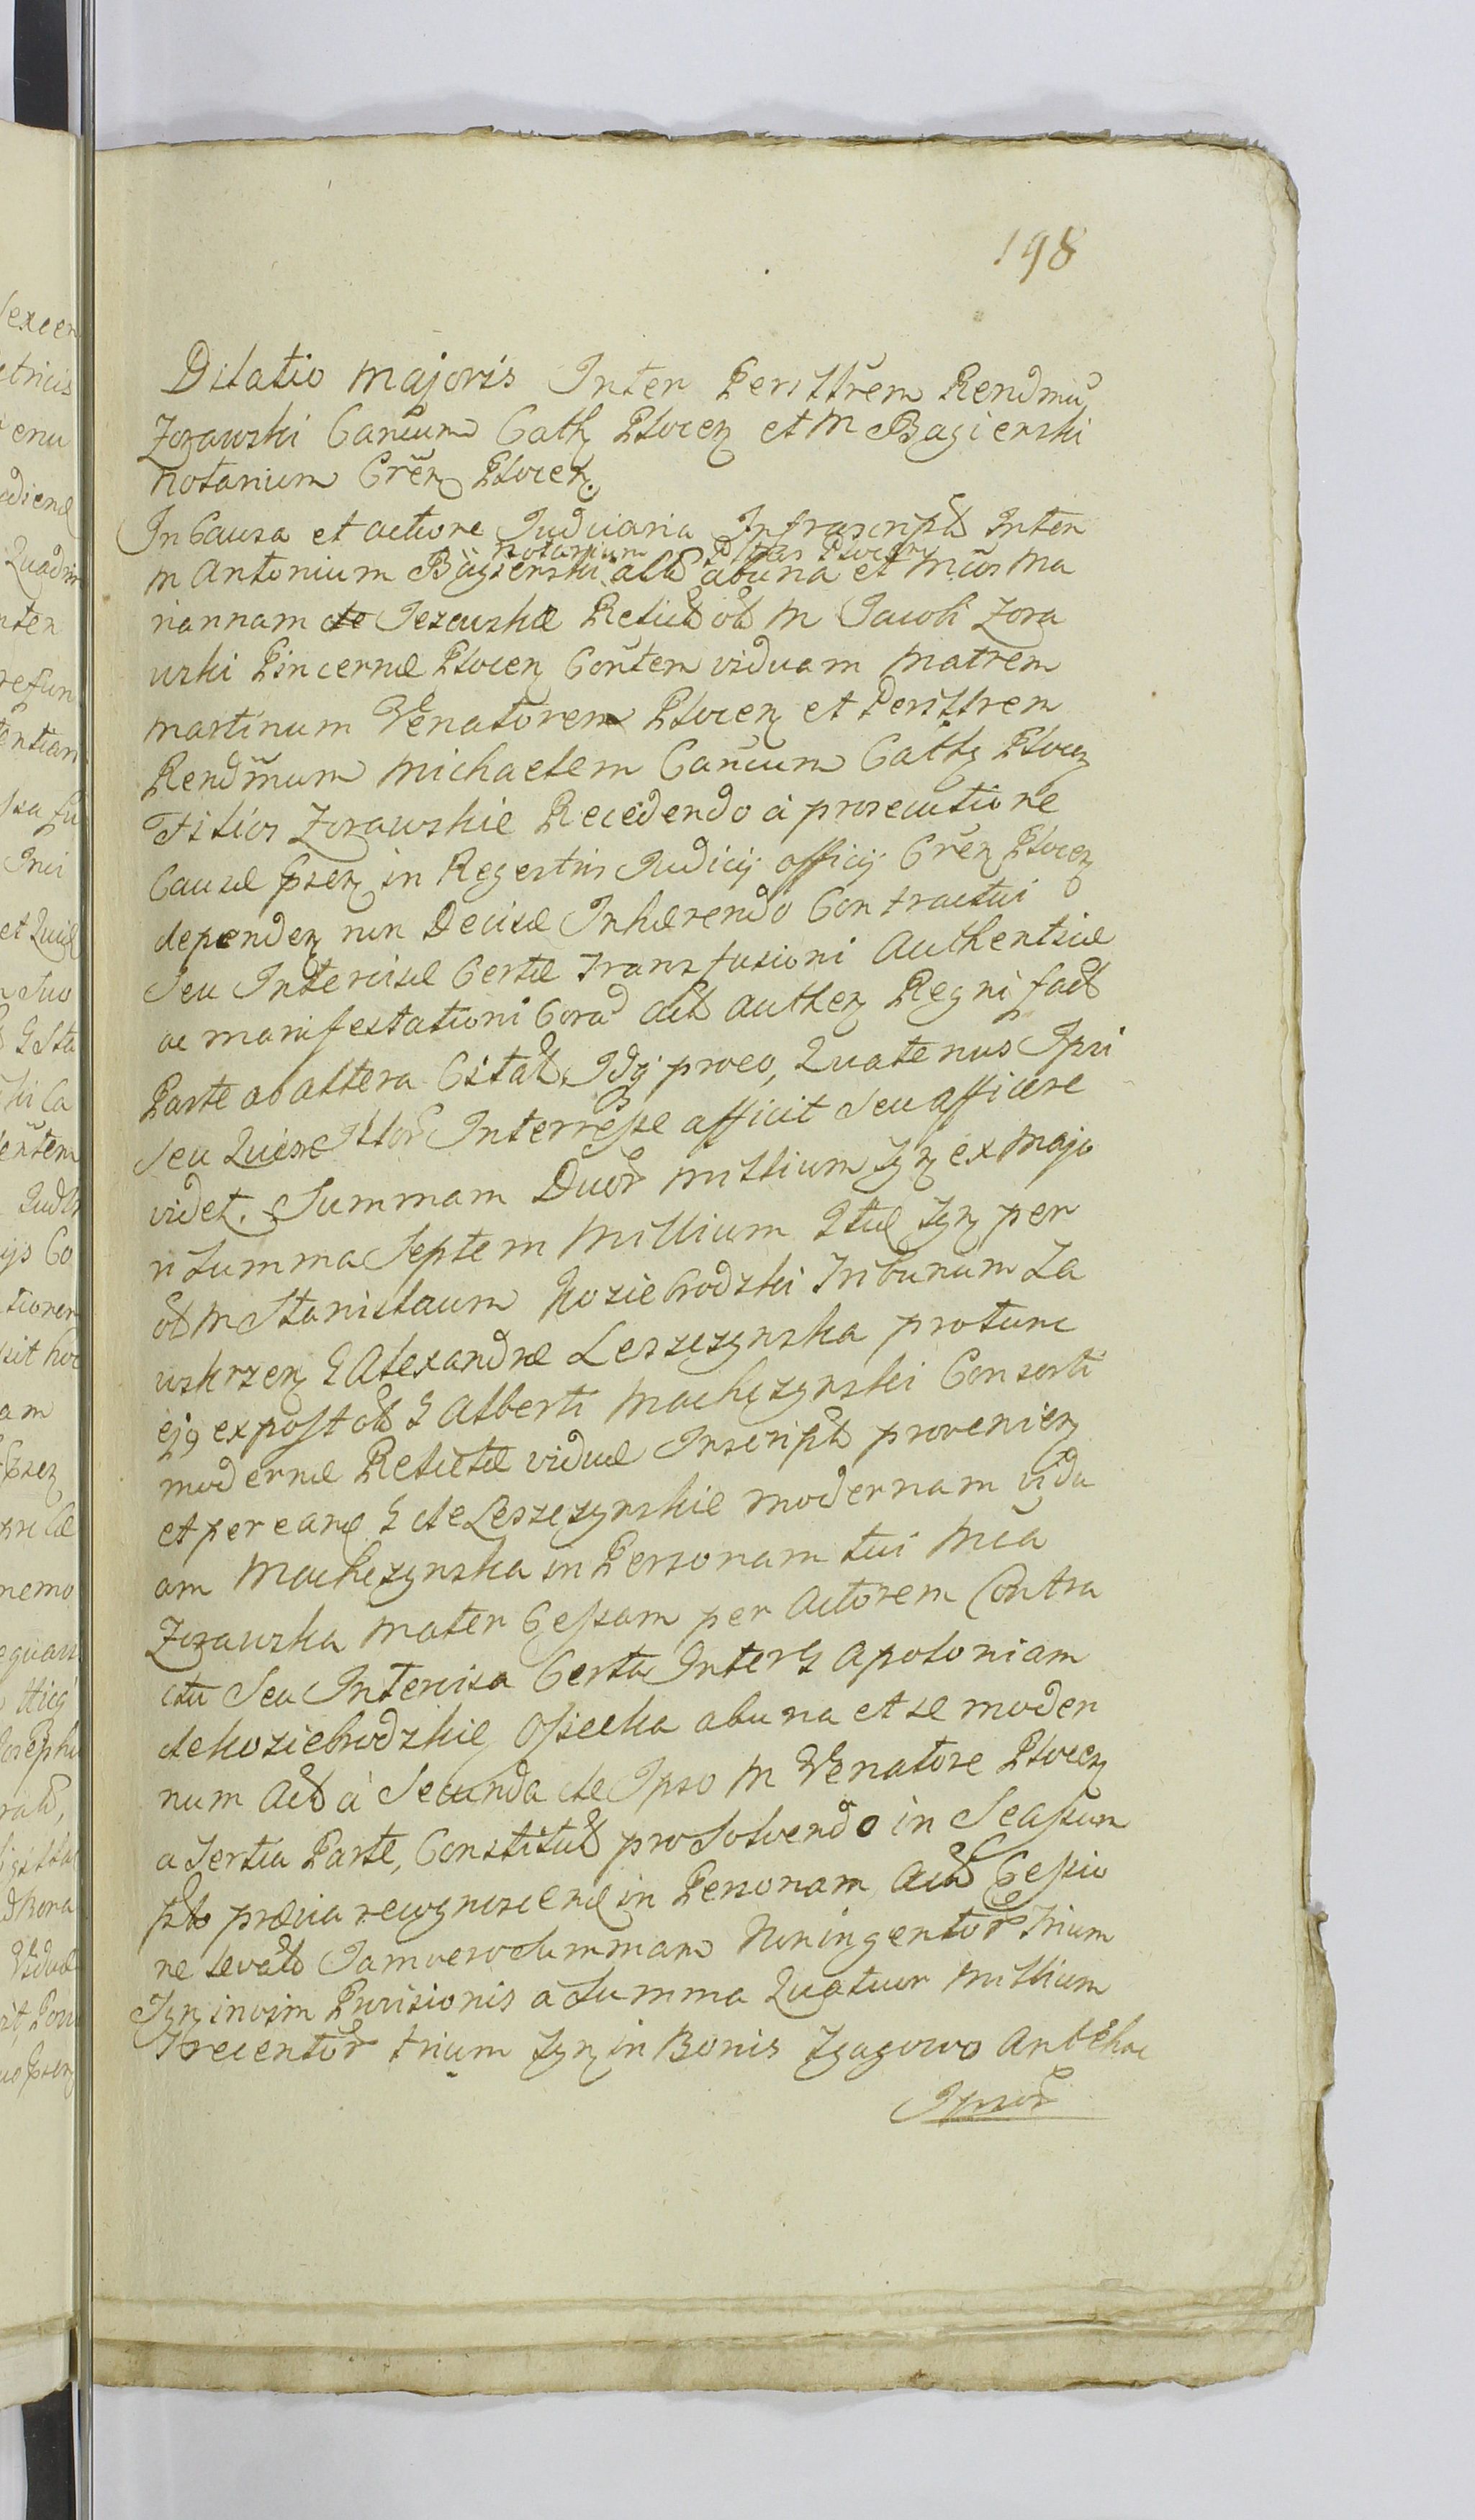 198
Dilatio majoris Inter Perillrem Rendmu
Zorawski Cancum Cath Plocen et M Bagienski
Notarium Cren Plocen
In Causa et actione Judiciaria Infrascript Inter
Notarium Cas Plocen
M Antonium Bagienski act ab una et Mcas Ma
riannam de Jezewskie Relict ol M Jacobi Zora
wski Pincernæ Plocen Contem viduam Matrem
Martinum Venatorem Plocen et Perillrem
Rendmum Michaelem Cancum Cath Plocen
Filios Zorawskie Recedendo a prosecutione
Causæ psen in Regestris Judicij officij Cren Plocen
dependen non Decisæ Inhærendo Contractui
Seu Intercisæ Certæ Transfusioni Authenticæ
ac manifestationi Cora act authen Regni fact
Parte ab altera Citat. Idq proeo, Quatenus Ipsi
Seu Illor Interresse afficit Seu afficere
videt. Summam Duor Millium Zyn ex majo
ri Summa Septem Millium Ztæ Zyn per
ol M Stanislaum Koziebrodzki Tribunum Za
wskrzen G Alexandræ Leszczynska protunc
ejq expost ol G Alberti Machczynski Consorti
modernæ Relictæ viduæ Inscript provenien
et per eand G de Leszczynskie modernam vidu
am Machczynska in Personam tui Mca
Zorawska Mater Cessam per Actorem Contra
ctu Seu Intercisa Certa Inter G Apoloniam
de Koziebrodzkie Ossecka ab una et se moder
num Act à Secunda de Ipso M Venatore Plocen
a Tertia Parte, Constitut pro Solvendo in Seassum
pto prævia recognoscend in Personam Act Cessio
ne levat Jamvero Summam Noningentor Trium
Zyn invim Provisionis a Summa Quatuor Millium
Trecentor trium Zyn in Bonis Zgagowo Antehac
Ipsor